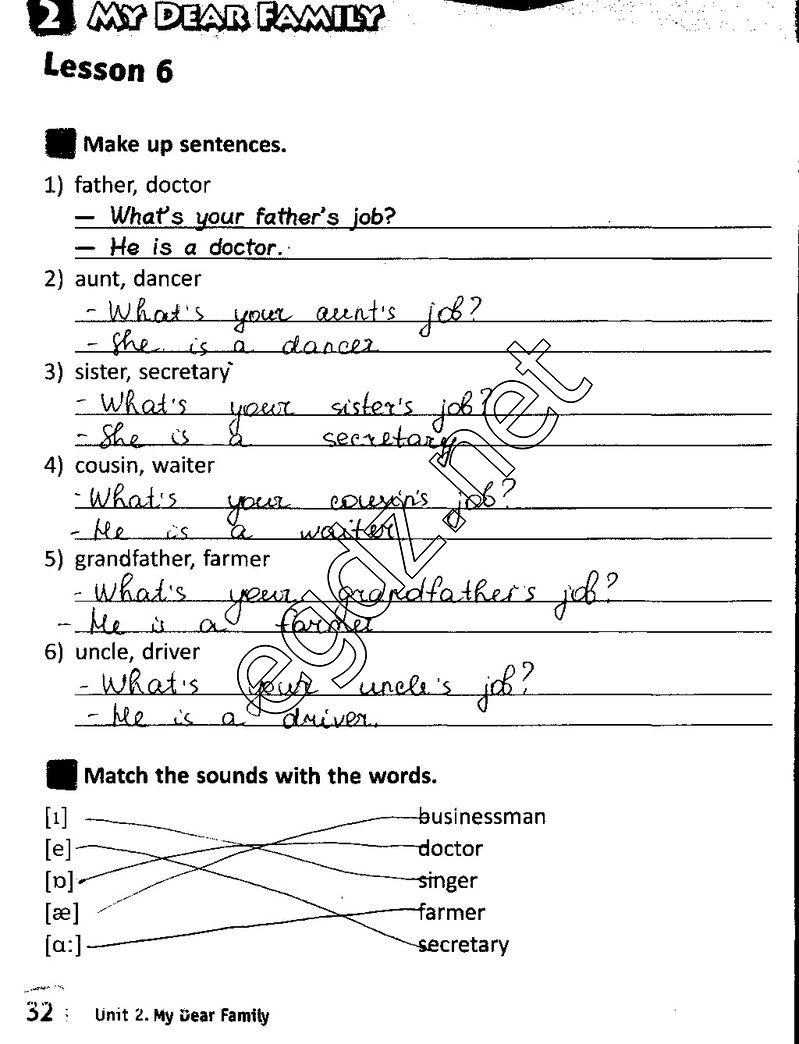 2 MY DEAR FAMILY
Lesson 6
Make up sentences.
1) father, doctor
— What's your father's job?
— He is a doctor.
2) aunt, dancer
- What's your aunt's job?
- She is a dancer
3) sister, secretary
- What's your sister's job?
- She is a secretary
4) cousin, waiter
- What's your cousin's job?
- He is a waiter
5) grandfather, farmer
- What's your grandfather's job?
- He is a farmer
6) uncle, driver
- What's your uncle's job?
- He is a driver.
egdz.net
Match the sounds with the words.
[ɪ] businessman
[e] doctor
[ɒ] singer
[æ] farmer
[ɑ:] secretary
32 Unit 2. My Dear Family